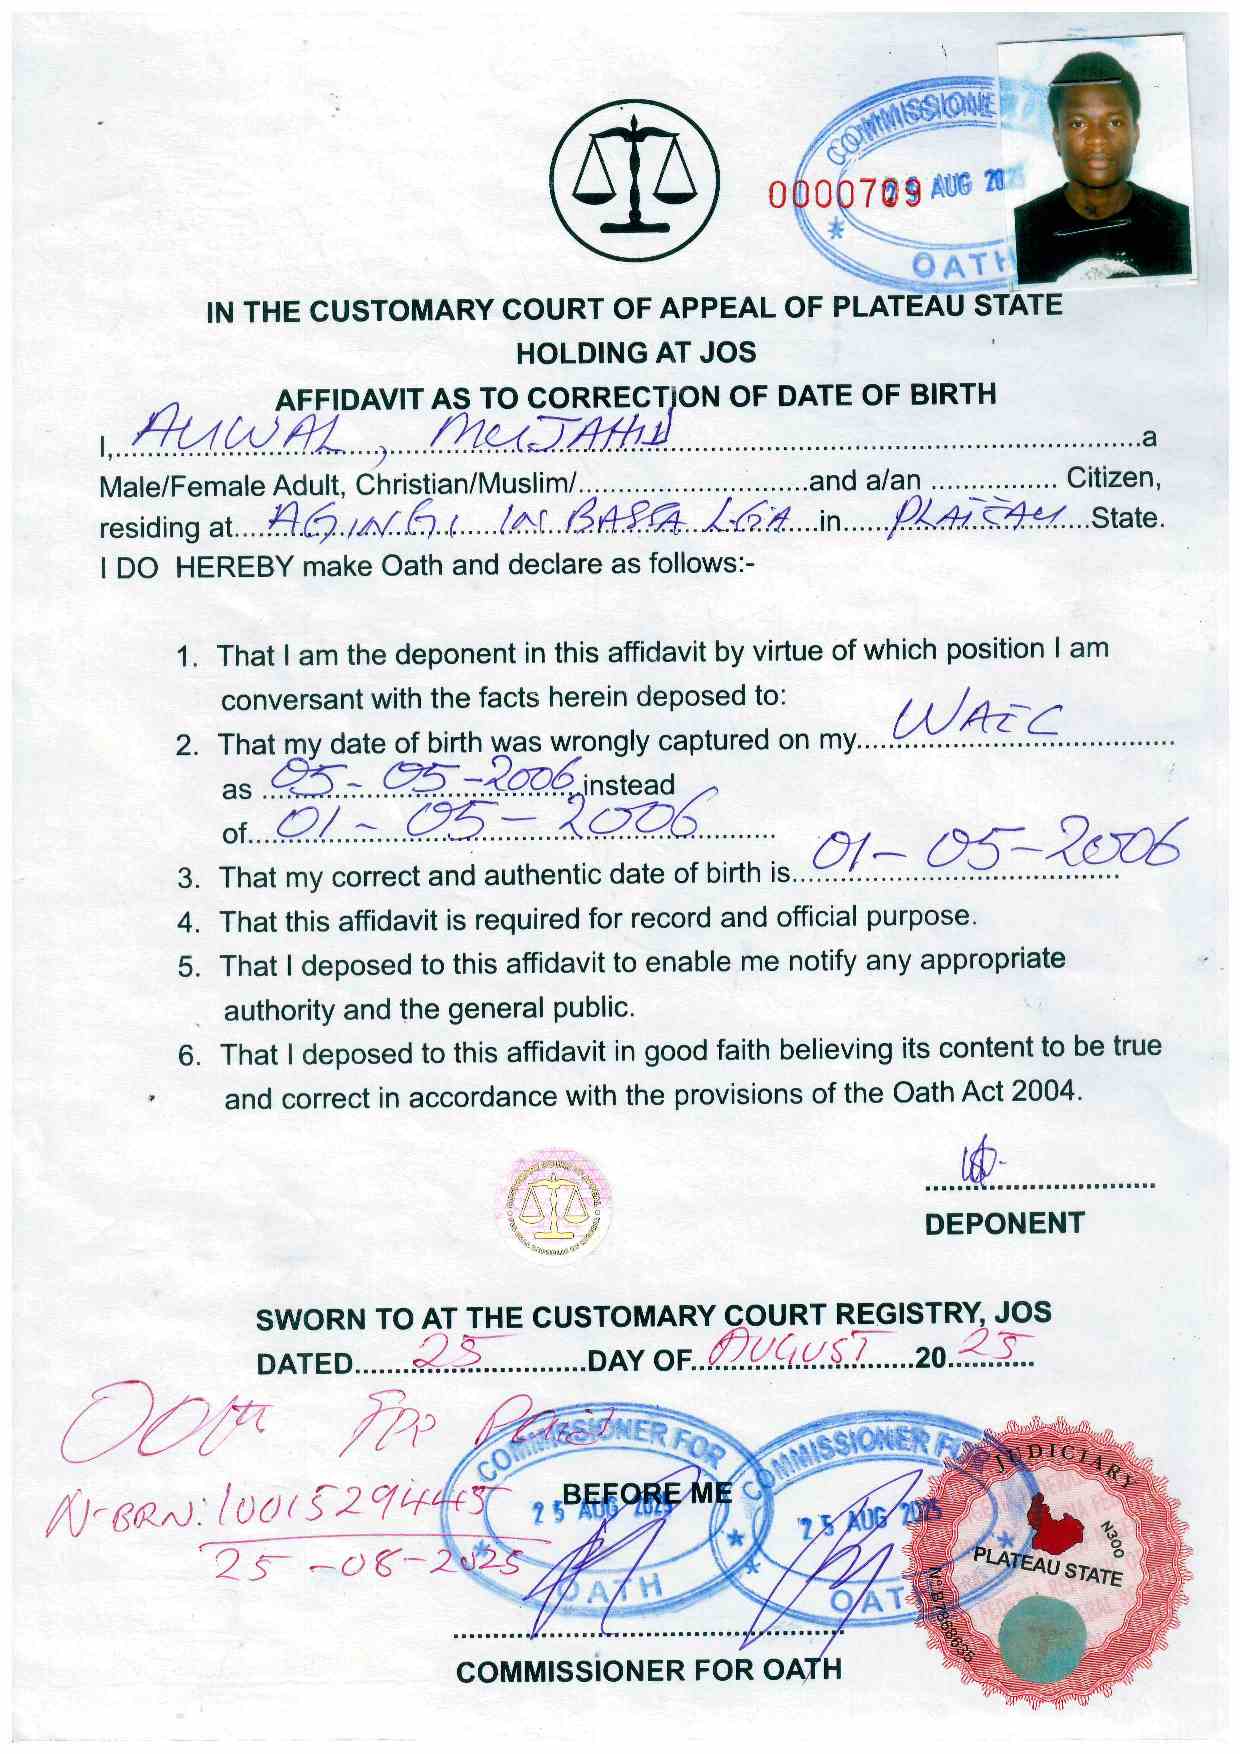 COMMISSIONE
0000709
25 AUG 2025
OATH
IN THE CUSTOMARY COURT OF APPEAL OF PLATEAU STATE
HOLDING AT JOS
AFFIDAVIT AS TO CORRECTION OF DATE OF BIRTH
I, AUWAL, MUJAHID a
Male/Female Adult, Christian/Muslim/..............................and a/an ................ Citizen,
residing at AGINGI IN BASSA LGA in PLATEAU State.
I DO HEREBY make Oath and declare as follows:-
1. That I am the deponent in this affidavit by virtue of which position I am
conversant with the facts herein deposed to:
2. That my date of birth was wrongly captured on my WAEC
as 05-05-2006 instead
of 01-05-2006
3. That my correct and authentic date of birth is 01-05-2006
4. That this affidavit is required for record and official purpose.
5. That I deposed to this affidavit to enable me notify any appropriate
authority and the general public.
6. That I deposed to this affidavit in good faith believing its content to be true
and correct in accordance with the provisions of the Oath Act 2004.
DEPONENT
SWORN TO AT THE CUSTOMARY COURT REGISTRY, JOS
DATED 25 DAY OF AUGUST 2025
Oath Fee Paid
N-BRN: 1001529443
25-08-2025
COMMISSIONER FOR
25 AUG 2025
OATH
BEFORE ME
COMMISSIONER FOR
25 AUG 2025
OATH
JUDICIARY
N300
PLATEAU STATE
COMMISSIONER FOR OATH